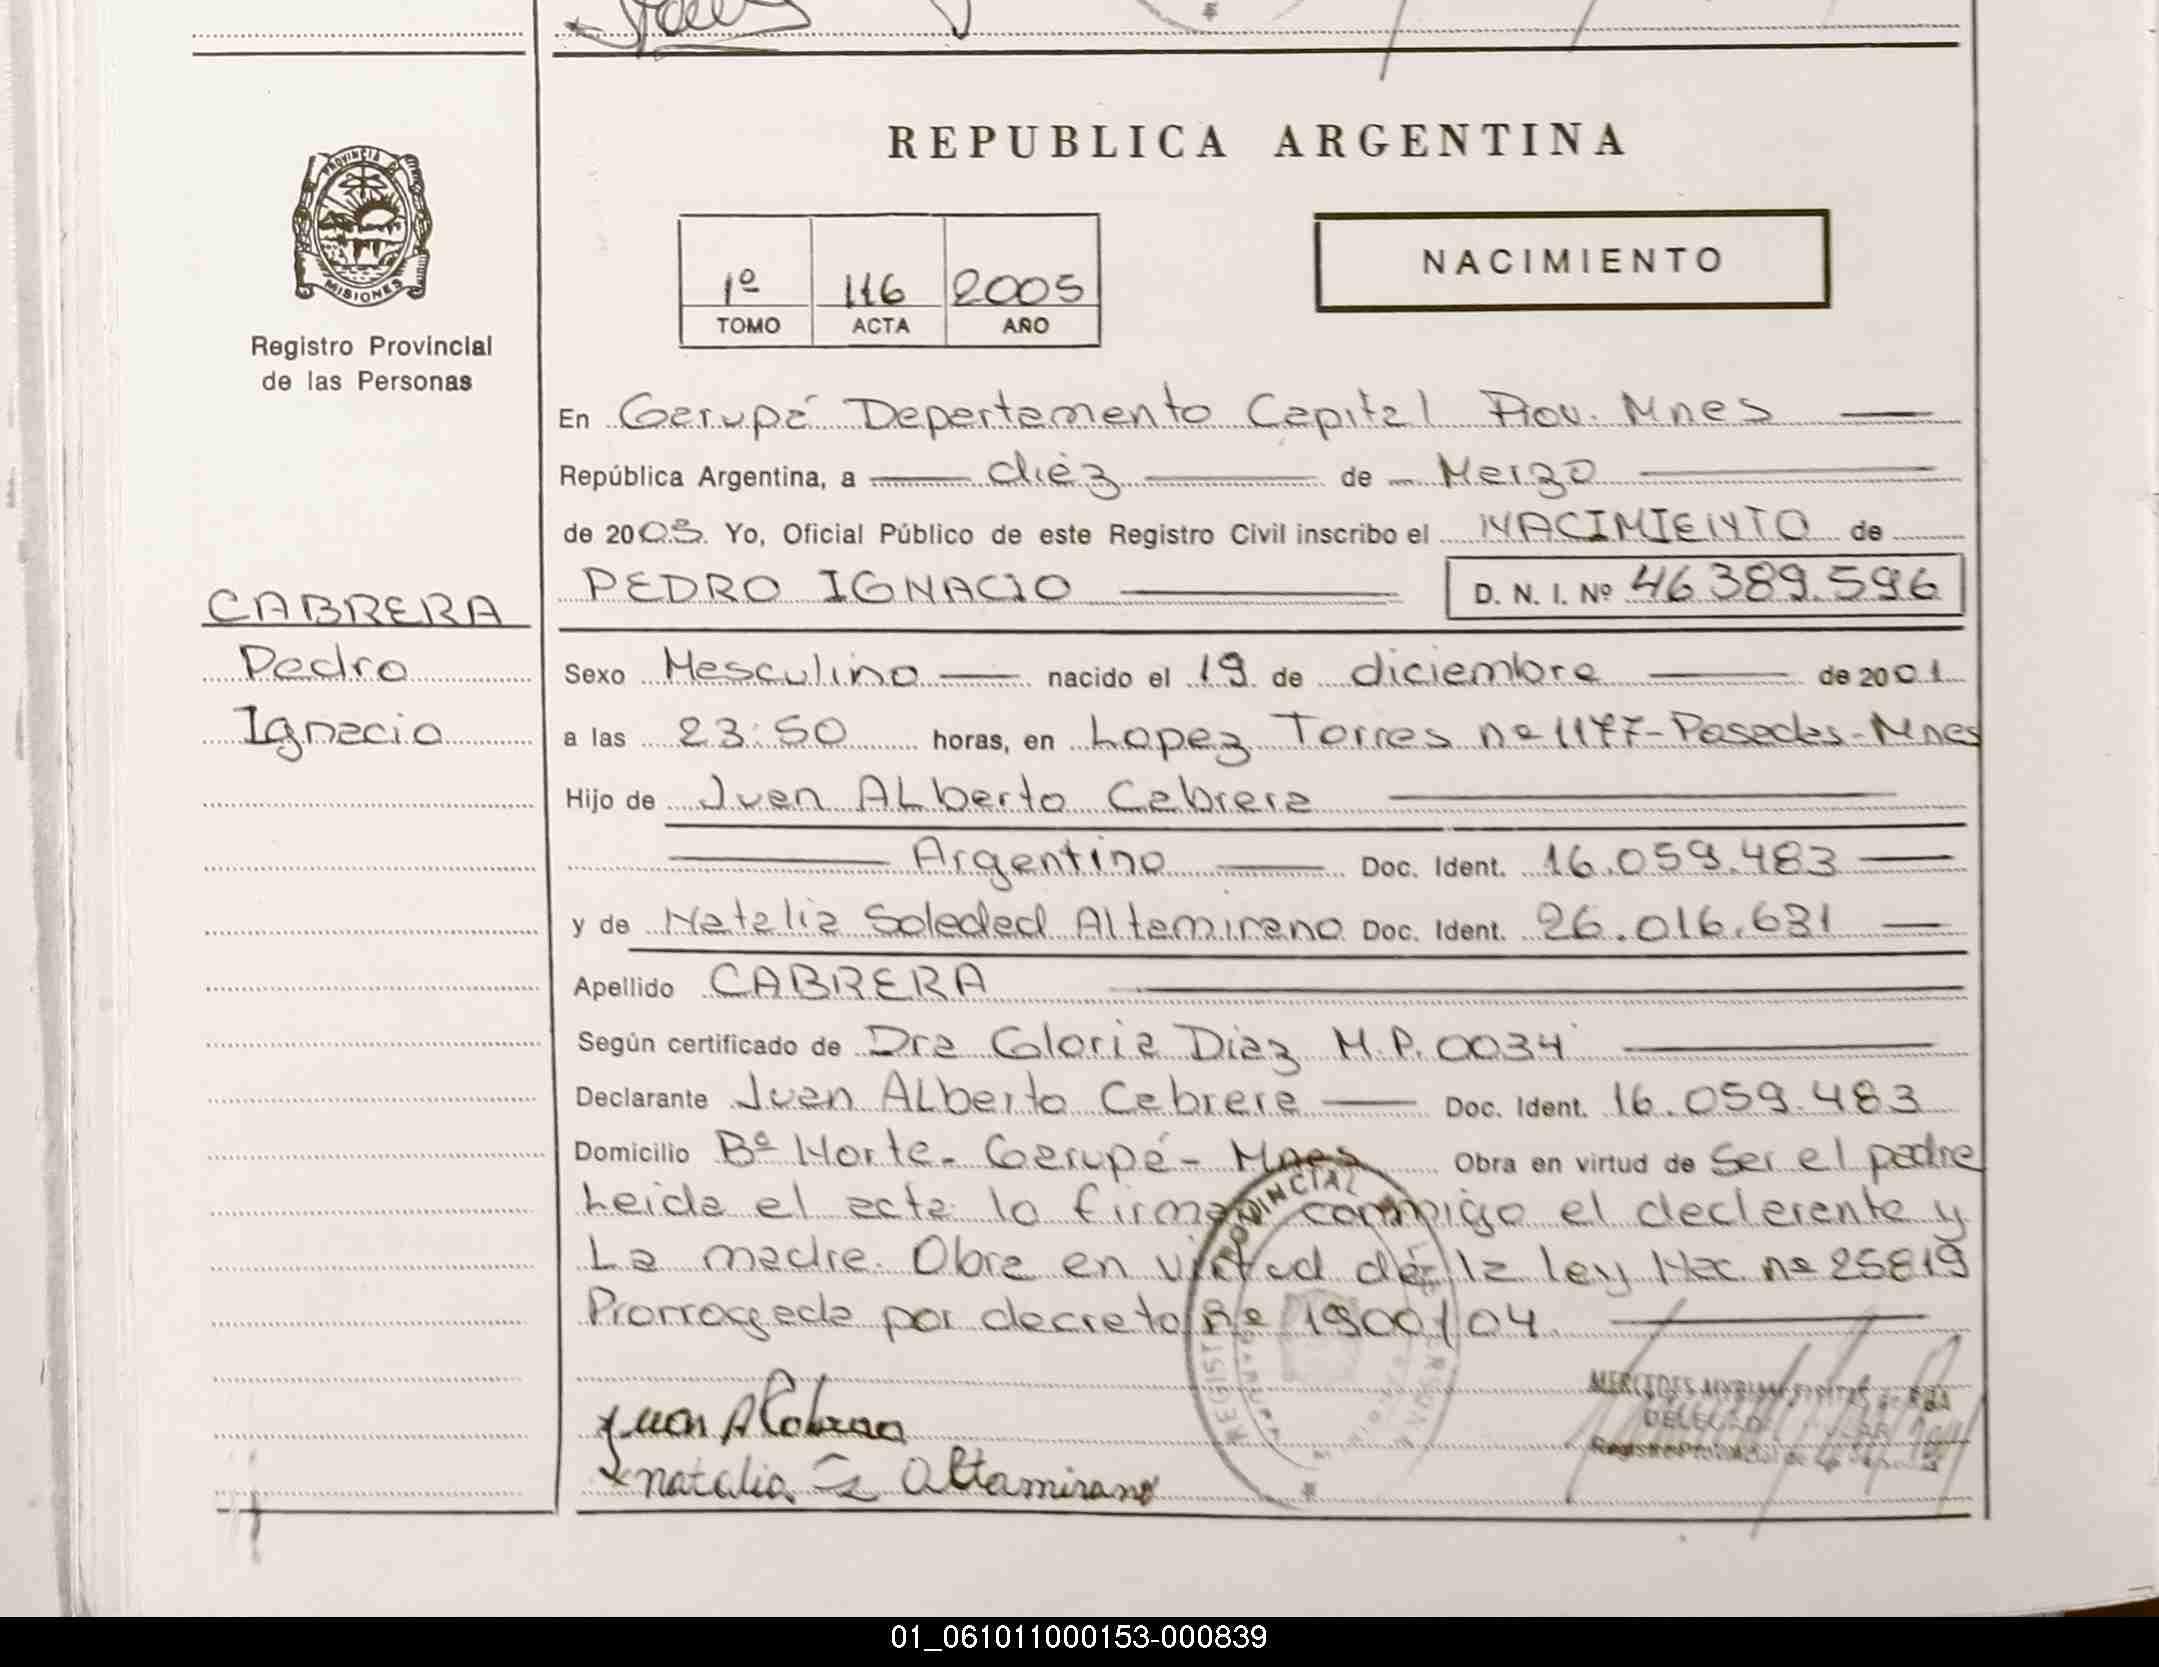 REPUBLICA ARGENTINA
PROVINCIA DE
MISIONES
Registro Provincial
de las Personas
NACIMIENTO
1º 116 2005
TOMO ACTA AÑO
En Garupá Departamento Capital Prov. Mnes
República Argentina, a diéz de Marzo
de 2005. Yo, Oficial Público de este Registro Civil inscribo el NACIMIENTO de
PEDRO IGNACIO D. N. I. Nº 46389.596
CABRERA
Pedro
Ignacio
Sexo Masculino nacido el 19 de diciembre de 2001
a las 23:50 horas, en Lopez Torres nº 1177-Posadas-Mnes
Hijo de Juan ALberto Cabrera
Argentino Doc. Ident. 16.059.483
y de Natalia Soledad Altamirano Doc. Ident. 26.016.631
Apellido CABRERA
Según certificado de Dra Gloria Diaz M.P. 0034
Declarante Juan ALberto Cabrera Doc. Ident. 16.059.483
Domicilio Bº Norte- Garupá- Mnes Obra en virtud de Ser el padre
Leida el acta lo firman conmigo el declarante y
La madre. Obra en virtud de la ley Nac. nº 25819
Prorrogada por decreto nº 1900/04.
Juan A Cabrera
natalia S Altamirano
PROVINCIAL
MERCEDES MYRIAM
Registro Provincial de las Personas
01_061011000153-000839